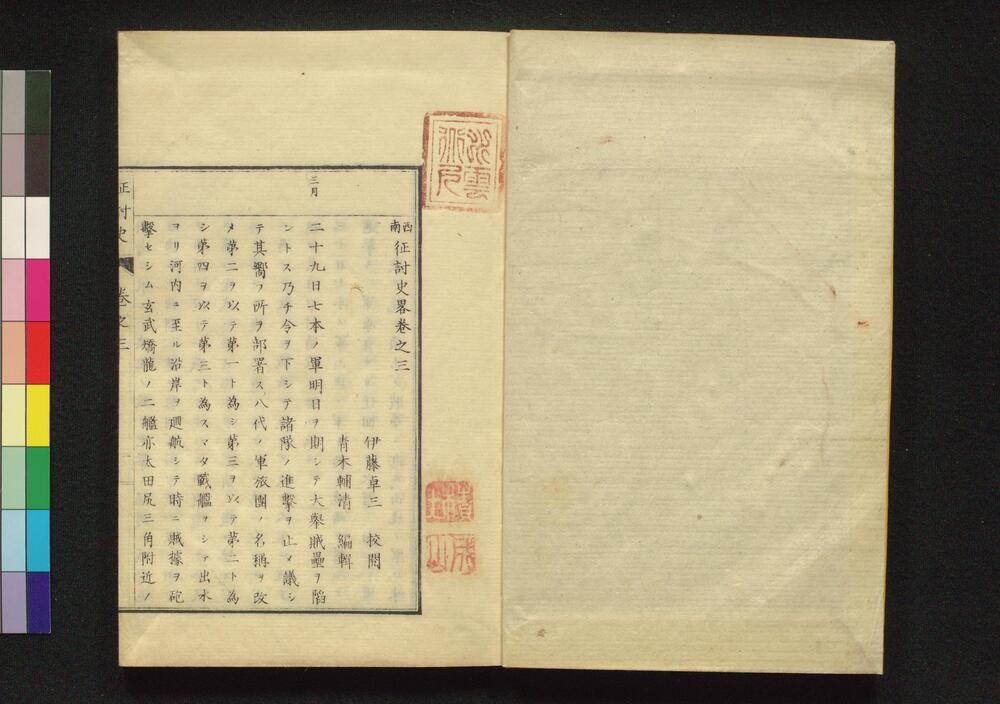 西南征討史畧卷之三
伊藤卓三　校閲
青木輔清　編輯
三月
二十九日七本ノ軍明日ヲ期シテ大擧賊壘ヲ陷
ントス乃チ令ヲ下シテ諸隊ノ進擊ヲ止メ議シ
テ其嚮フ所ヲ部署ス八代ノ軍旅團ノ名稱ヲ改
メ第二ヲ以テ第一ト為シ第三ヲ以テ第二ト為
シ第四ヲ以テ第三ト為スマタ戰艦ヲシテ出水
ヨリ河内ニ至ル沿岸ヲ廻航シテ時ニ賊據ヲ砲
擊セシム玄武燆龍ノ二艦亦太田尻三角附近ノ
征討史
卷之三